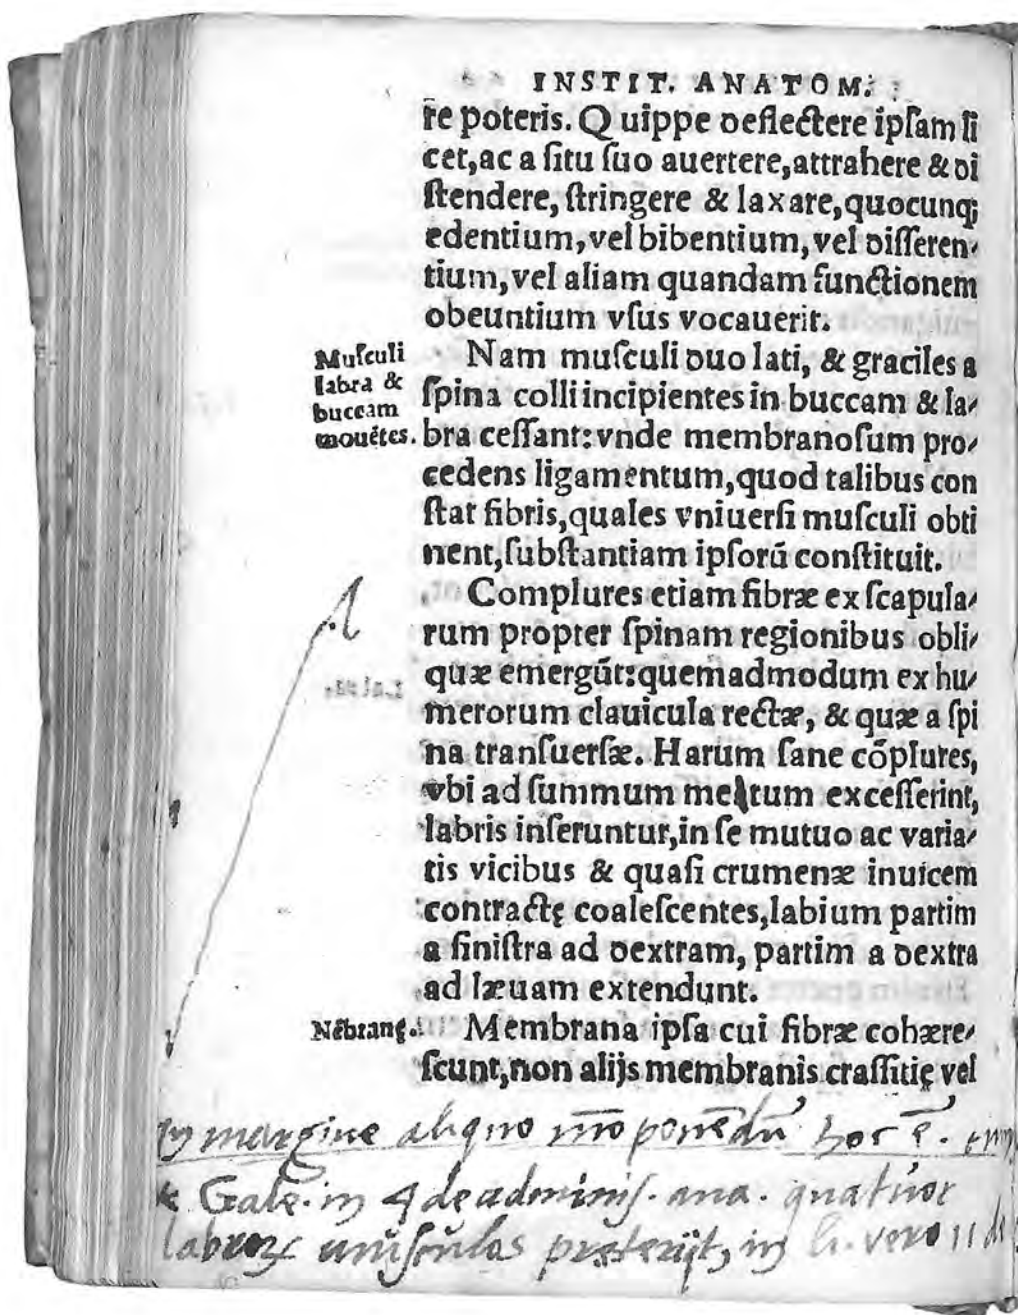 INSTIT. ANATOM.
re poteris. Quippe deflectere ipſam li
cet, ac a ſitu ſuo auertere, attrahere & di
ſtendere, ſtringere & laxare, quocunq;
edentium, vel bibentium, vel diſſeren-
tium, vel aliam quandam functionem
obeuntium vſus vocauerit.
Muſculi
labra &
buccam
mouẽtes.
Nam muſculi duo lati, & graciles a
ſpina colli incipientes in buccam & la-
bra ceſſant: vnde membranoſum pro-
cedens ligamentum, quod talibus con
ſtat fibris, quales vniuerſi muſculi obti
nent, ſubſtantiam ipſorũ conſtituit.
Complures etiam fibræ ex ſcapula-
rum propter ſpinam regionibus obli-
quæ emergũt: quemadmodum ex hu-
merorum clauicula rectæ, & quæ a ſpi
na tranſuerſæ. Harum ſane cõplures,
vbi ad ſummum mentum exceſſerint,
labris inſeruntur, in ſe mutuo ac varia-
tis vicibus & quaſi crumenæ inuicem
contractę coaleſcentes, labium partim
a ſiniſtra ad dextram, partim a dextra
ad læuam extendunt.
Mẽbranę.
Membrana ipſa cui fibræ cohære-
ſcunt, non alijs membranis craſſitię vel
in margine aliquo mõ ponẽdũ hoc ẽ.
Galẽ. in 4 de adminiſ. ana. quatuor
labrorũ muſculos præterijt, in li. vero 11 de